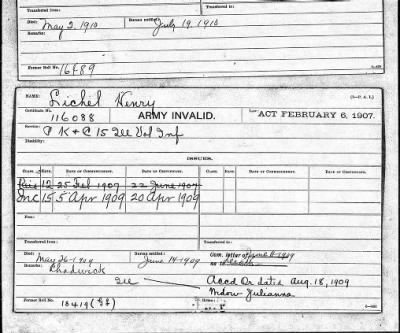 Transferred from: Transferred to:
Died: May 2 1910 Bureau notified: July 19, 1910
Remarks:
Former Roll No. 16489
NAME: Lichel Henry
Certificate No. 116088 ARMY INVALID. LAW: ACT FEBRUARY 6, 1907.
Service: K & C 15 Ill Vol Inf
Disability:
ISSUES.
CLASS. RATE. DATE OF COMMENCEMENT. DATE OF CERTIFICATE. CLASS. RATE. DATE OF COMMENCEMENT. DATE OF CERTIFICATE.
12 25 Feb 1909 22 June 1909
Inc 15 5 Apr 1909 20 Apr 1909
Fee:
Transferred from: Transferred to:
Died: May 26-1909 Bureau notified: June 14-1909 Com. letter of 1909
Remarks: Chadwick
Ill Accd Or dated Aug. 18, 1909
Widow Julianna
Former Roll No. 18419 Home: